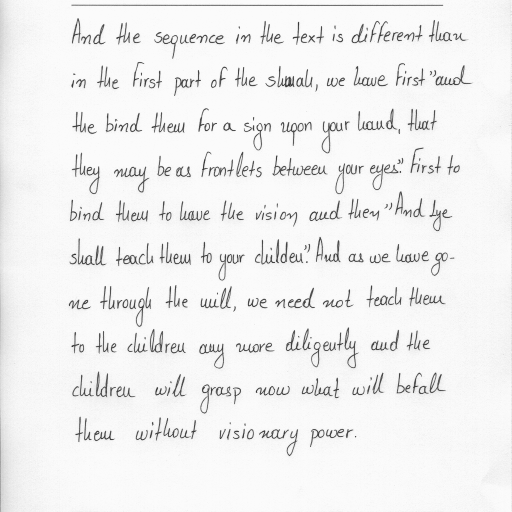 And the sequence in the text is different than
in the first part of the shmah, we have first "and
the bind them for a sign upon your hand, that
they may be as frontlets between your eyes". First to
bind them to have the vision and then "And ye
shall teach them to your childen". And as we have go-
ne through the mill, we need not teach them
to the children any more diligently and the
children will grasp now what will befall
them without visionary power.